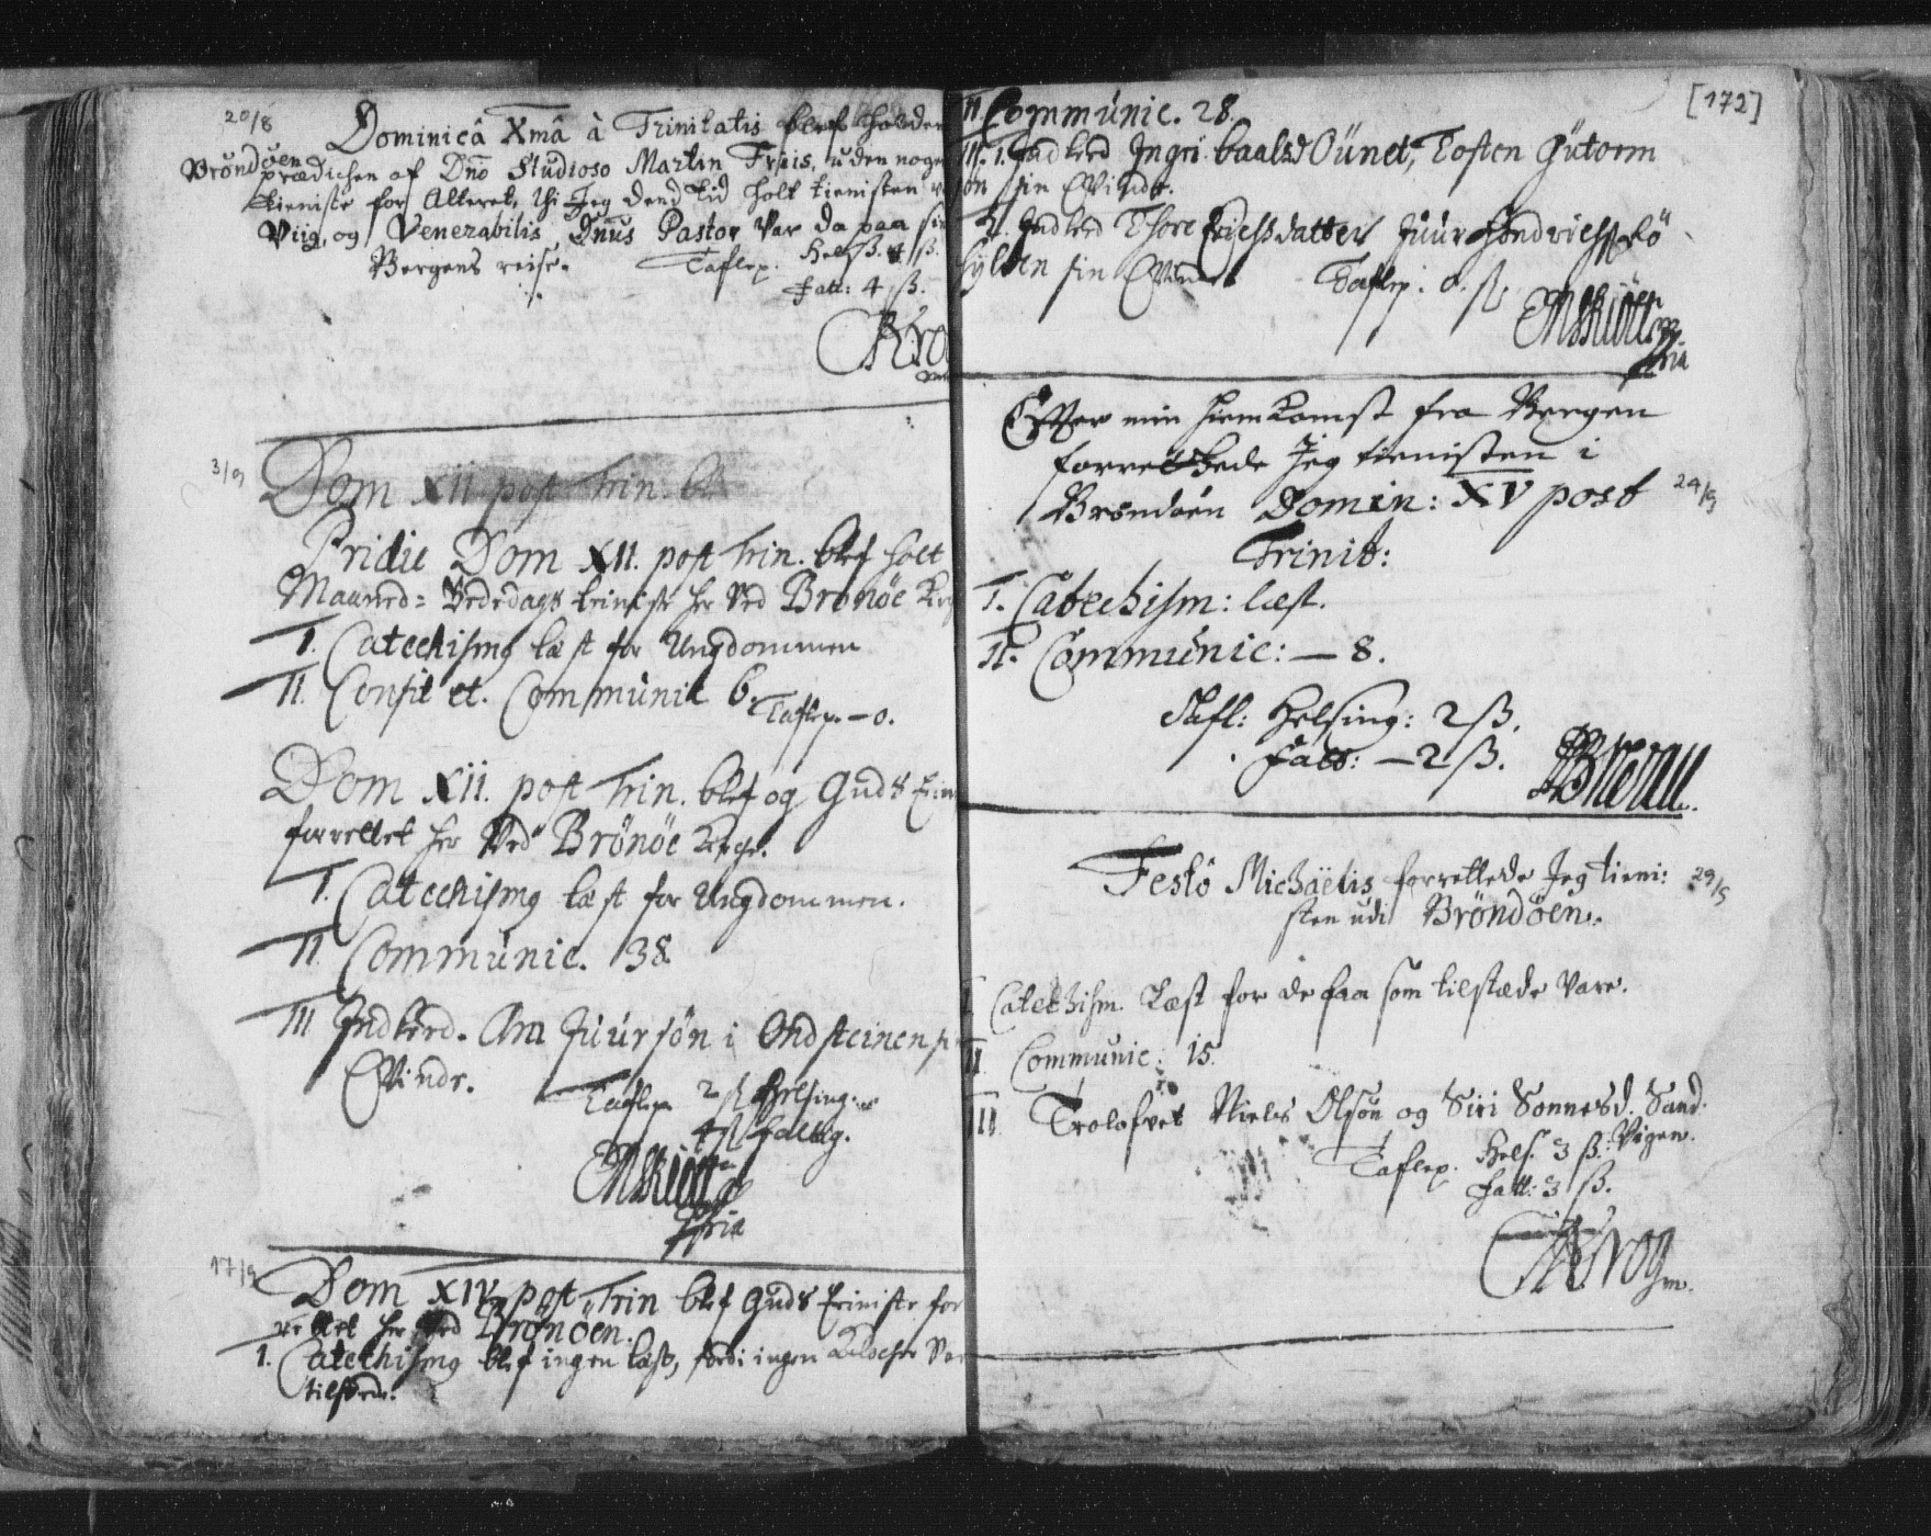 20/8
Dominicâ Xmâ à Trinitatis blef holden
Brøndøen
prædichen af Dno Studioso Martin Frøis, uden nogen
tieniste for Alteret, thi Jeg dend tid holt tienisten
Viig, og Venerabilis Dnus Pastor var da paa sin
Bergens reise. Taflep. Hels. 4 ß.
Fatt: 4 ß.
3/9
Dom XII post Trin. bl
Pridie Dom XII. post Trin. blef holt
Maaned= Bededags teiniste her ved Brønöe
I. Catechismq læst for Ungdommen
II. Confit et. Communic 6.
Taflep. – 0.
Dom XII. post Trin. blef og Guds
forrettet her ved Brönöe Kirche.
I. Catechismq læst for Ungdommen.
II Communic. 38
III Indlerd. Ane Juursøn i Ondsteinen
Qvinde.
Taflep 2 ß Helsing.
4 ß fattig.
17/9
Dom XIV post Trin blef Guds teiniste for
rettet her ved Brönöen.
I. Catechismq blef ingen læst, fordi ingen
tilstede.
[172]
II. Communic. 28.
III. 1. Indlerd Ingri Oünet, Tosten Gütorm
sön sin Qvinde.
2. Indlerd Thore
sin Qvinde Taflep: 0. ß.
Efter min hiemkomst fra Bergen
forrettede Jeg tienisten i
Brøndøen Domin: XV post
24/9
Trinit:
I. Catechism: læst.
II. Communic: – 8.
Tafl: Helsing: 2 ß.
Fatt: – 2 ß.
Festo Michäelis forrettede Jeg tieni:
29/9
sten udi Brøndøen.
I Catechism. læst for de faa som tilstæde vare.
II Communic: 15.
III Trolofvet Niels Olsøn og Siri Sonnesd. Sand:
Vigen.
Taflep. Hels. 3 ß.
Fatt: 3 ß.